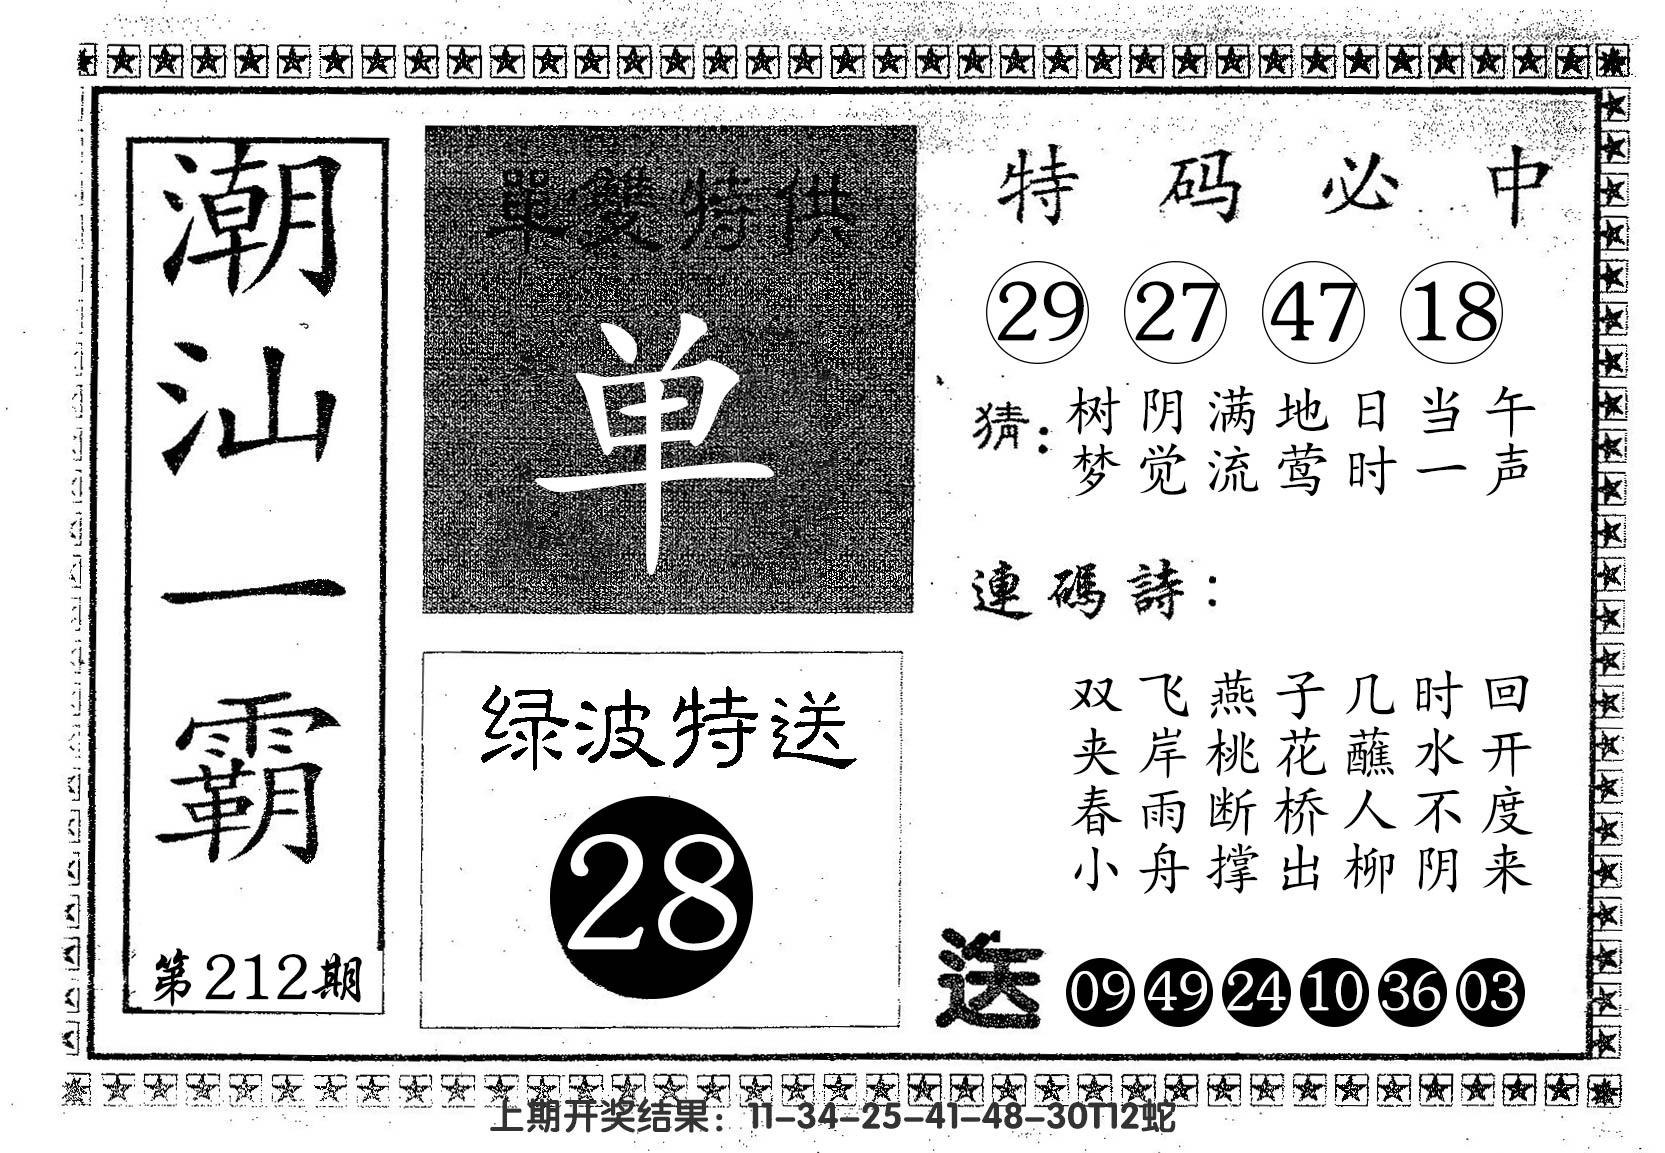 潮汕一霸
第212期
單雙特供
单
绿波特送
28
特码必中
29 27 47 18
猜：树阴满地日当午
梦觉流莺时一声
連碼詩：
双飞燕子几时回
夹岸桃花蘸水开
春雨断桥人不度
小舟撑出柳阴来
送 09 49 24 10 36 03
上期开奖结果：11-34-25-41-48-30T12蛇